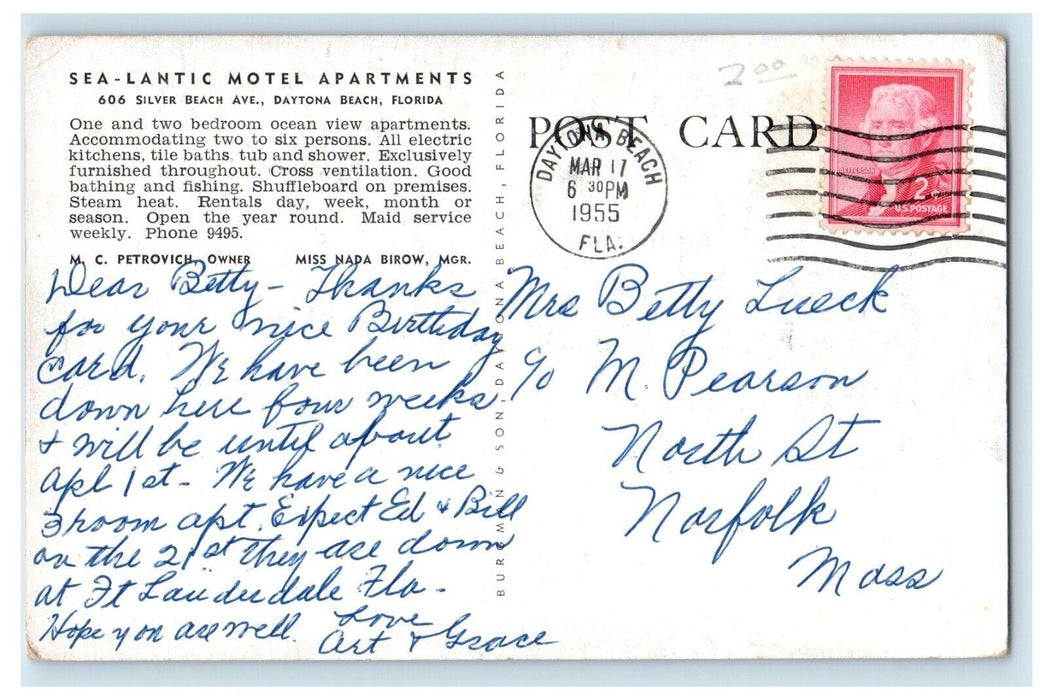 SEA-LANTIC MOTEL APARTMENTS
606 SILVER BEACH AVE., DAYTONA BEACH, FLORIDA
One and two bedroom ocean view apartments.
Accommodating two to six persons. All electric
kitchens, tile baths, tub and shower. Exclusively
furnished throughout. Cross ventilation. Good
bathing and fishing. Shuffleboard on premises.
Steam heat. Rentals day, week, month or
season. Open the year round. Maid service
weekly. Phone 9495.
M. C. PETROVICH, OWNER MISS NADA BIROW, MGR.
Dear Betty - Thanks
for your nice Birthday
card. We have been
down here four weeks
& will be until about
Apl 1st - We have a nice
3 room apt. Expect Ed & Bill
on the 21st they are down
at Ft Lauderdale Fla -
Hope you are well.
Love
Art & Grace
BURGMAN & SON, DAYTONA BEACH, FLORIDA
POST CARD
2 00
DAYTONA BEACH
MAR 17
6 30PM
1955
FLA.
JEFFERSON
2¢
U.S. POSTAGE
Mrs Betty Lueck
c/o M Pearson
North St
Norfolk
Mass